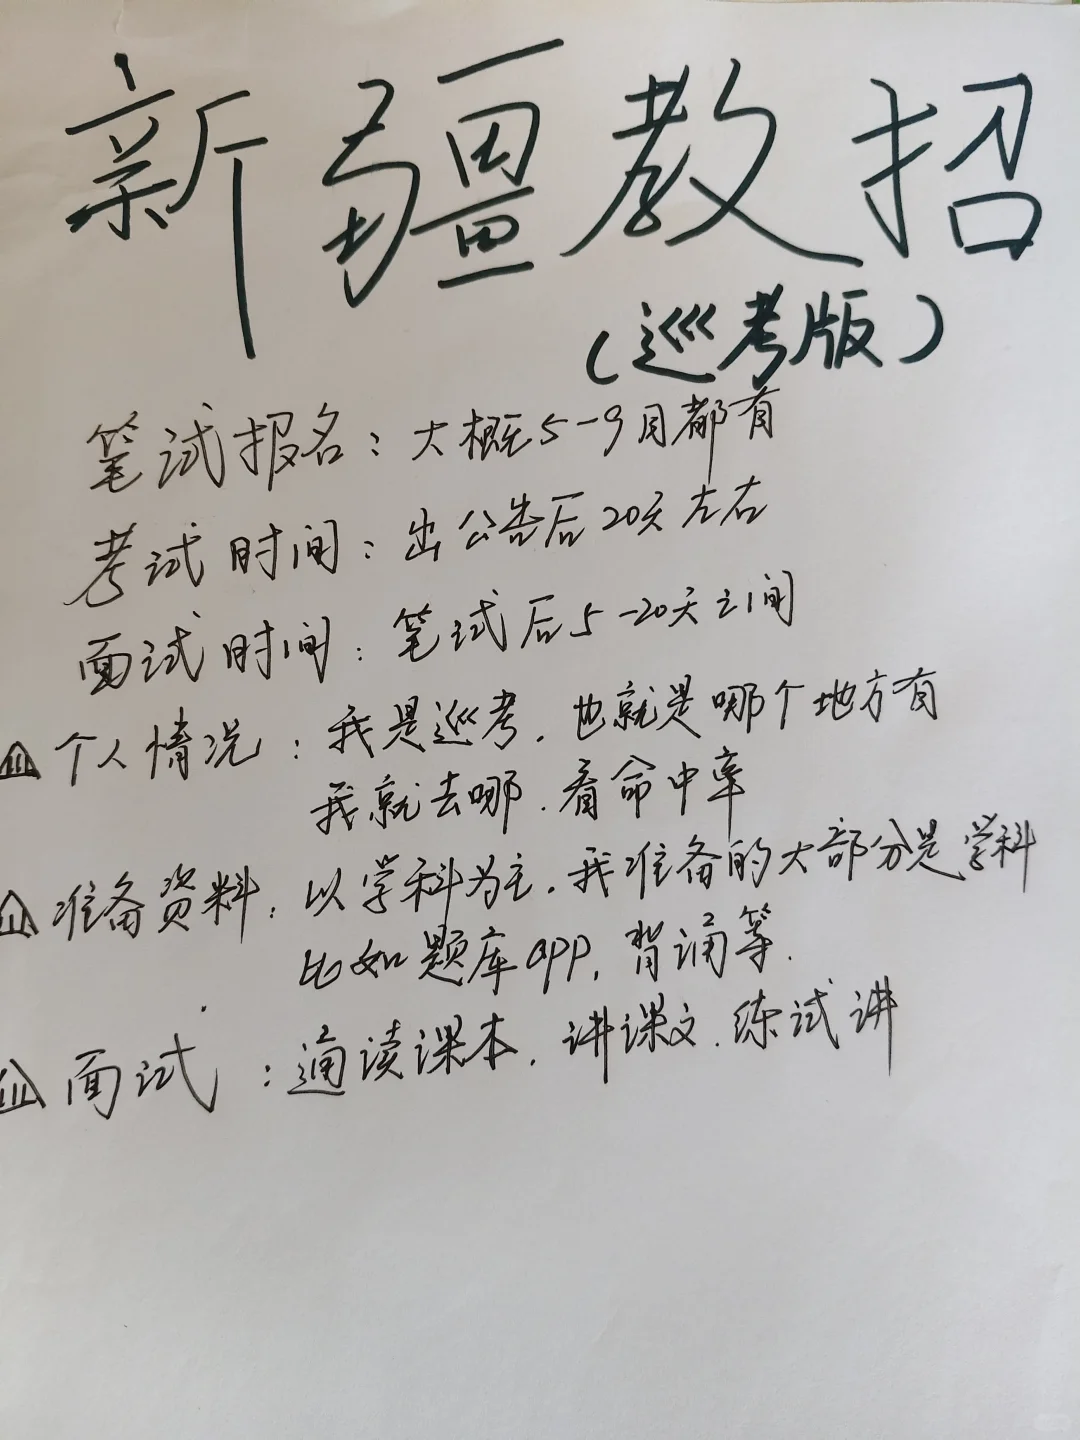 新疆教招
（巡考版）
笔试报名：大概5-9月都有
考试时间：出公告后20天左右
面试时间：笔试后5-20天之间
个人情况：我是巡考，也就是哪个地方有
我就去哪，看命中率
准备资料：以学科为主，我准备的大部分是学科
比如题库app，背诵等．
面试：通读课本，讲课文，练试讲